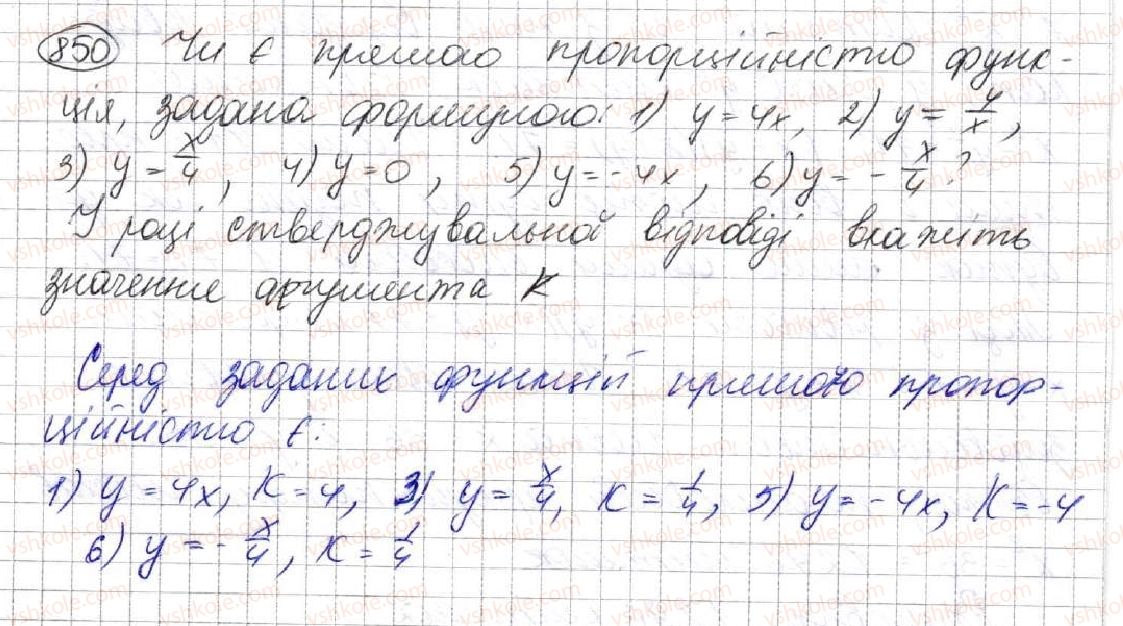 850 Чи є прямою пропорційністю функ-
ція, задана формулою: 1) y = 4x, 2) y = 4/x,
3) y = x/4, 4) y = 0, 5) y = -4x, 6) y = - x/4?
У разі стверджувальної відповіді вкажіть
значення аргумента k
Серед заданих функцій прямою пропор-
ційністю є:
1) y = 4x, k = 4, 3) y = x/4, k = 1/4, 5) y = -4x, k = -4
6) y = - x/4, k = 1/4